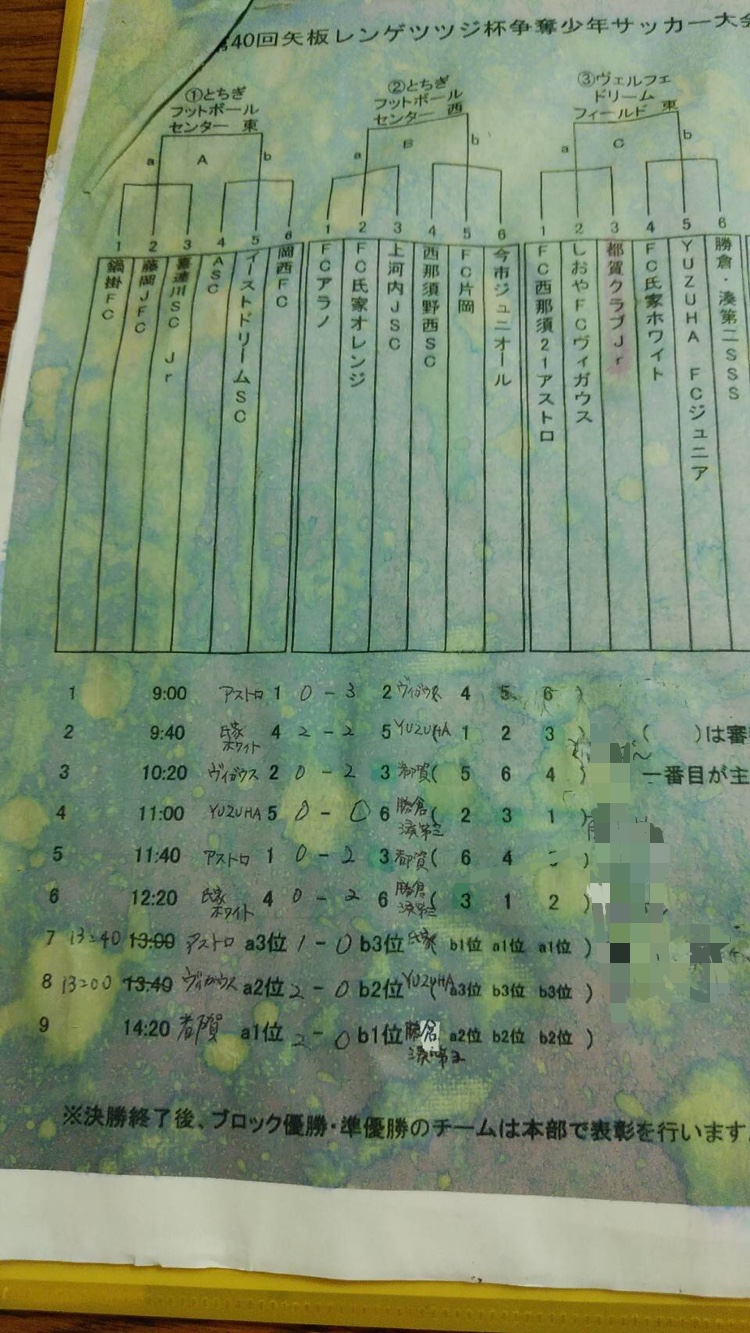 40回矢板レンゲツツジ杯争奪少年サッカー大会
①とちぎ
フットボール
センター 東
②とちぎ
フットボール
センター 西
③ヴェルフェ
ドリーム
フィールド 東
a A b
a B b
a C b
1 2 3 4 5 6
1 2 3 4 5 6
1 2 3 4 5 6
鍋掛FC
藤岡JFC
喜連川SC Jr
ASC
イーストドリームSC
岡西FC
FCアラノ
FC氏家オレンジ
上河内JSC
西那須野西SC
FC片岡
今市ジュニオール
FC西那須21アストロ
しおやFCヴィガウス
都賀クラブJr
FC氏家ホワイト
YUZUHA FCジュニア
勝倉・湊第二SSS
1 9:00 アストロ 1 0 - 3 2 ヴィガウス 4 5 6 )
2 9:40 氏家ホワイト 4 2 - 2 5 YUZUHA 1 2 3 ) ( )は審
3 10:20 ヴィガウス 2 0 - 2 3 都賀 ( 5 6 4 ) 一番目が主
4 11:00 YUZUHA 5 0 - 0 6 勝倉湊第二 ( 2 3 1 )
5 11:40 アストロ 1 0 - 2 3 都賀 ( 6 4 )
6 12:20 氏家ホワイト 4 0 - 2 6 勝倉湊第二 ( 3 1 2 )
7 13:40 13:00 アストロ a3位 1 - 0 b3位 氏家 b1位 a1位 a1位 )
8 13:00 13:40 ヴィガウス a2位 2 - 0 b2位 YUZUHA a3位 b3位 b3位 )
9 14:20 都賀 a1位 2 - 0 b1位 勝倉湊第二 a2位 b2位 b2位 )
※決勝終了後、ブロック優勝・準優勝のチームは本部で表彰を行います。